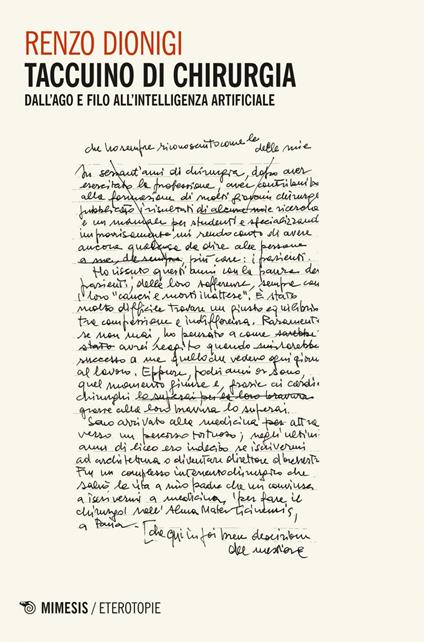 RENZO DIONIGI
TACCUINO DI CHIRURGIA
DALL'AGO E FILO ALL'INTELLIGENZA ARTIFICIALE
che ho sempre riconosciuto come le delle mie
In sessant'anni di chirurgia, dopo aver
esercitato la professione, aver contribuito
alla formazione di molti giovani chirurghi
pubblicato i risultati di alcune mie ricerche
e un manuale per studenti e specializzandi
improvvisamente mi rendo conto di avere
ancora qualcosa da dire alle persone
a me, da sempre, più care: i pazienti.
Ho vissuto questi anni con la paura dei
pazienti, delle loro sofferenze, sempre con
i loro "cancri e morti inattese". È stato
molto difficile trovare un giusto equilibrio
tra compassione e indifferenza. Raramente
se non mai, ho pensato a come sarebbe
stato avrei reagito quando mi sarebbe
successo a me quello che vedevo ogni giorno
al lavoro. Eppure, pochi anni or sono,
quel momento giunse e, grazie ai cardio
chirurghi lo superai per la loro bravura
grazie alla loro bravura lo superai.
Sono arrivato alla medicina per attra
verso un percorso tortuoso; negli ultimi
anni di liceo ero indeciso se iscrivermi
ad architettura o diventare direttore d'orchestra
Fu un complesso intervento chirurgico che
salvò la vita a mio padre che mi convinse
a iscrivermi a medicina, "per fare il
chirurgo" nell'Alma Mater Ticinensis,
a Pavia. [che qui in foi breve descrizione
del mestiere
MIMESIS / ETEROTOPIE